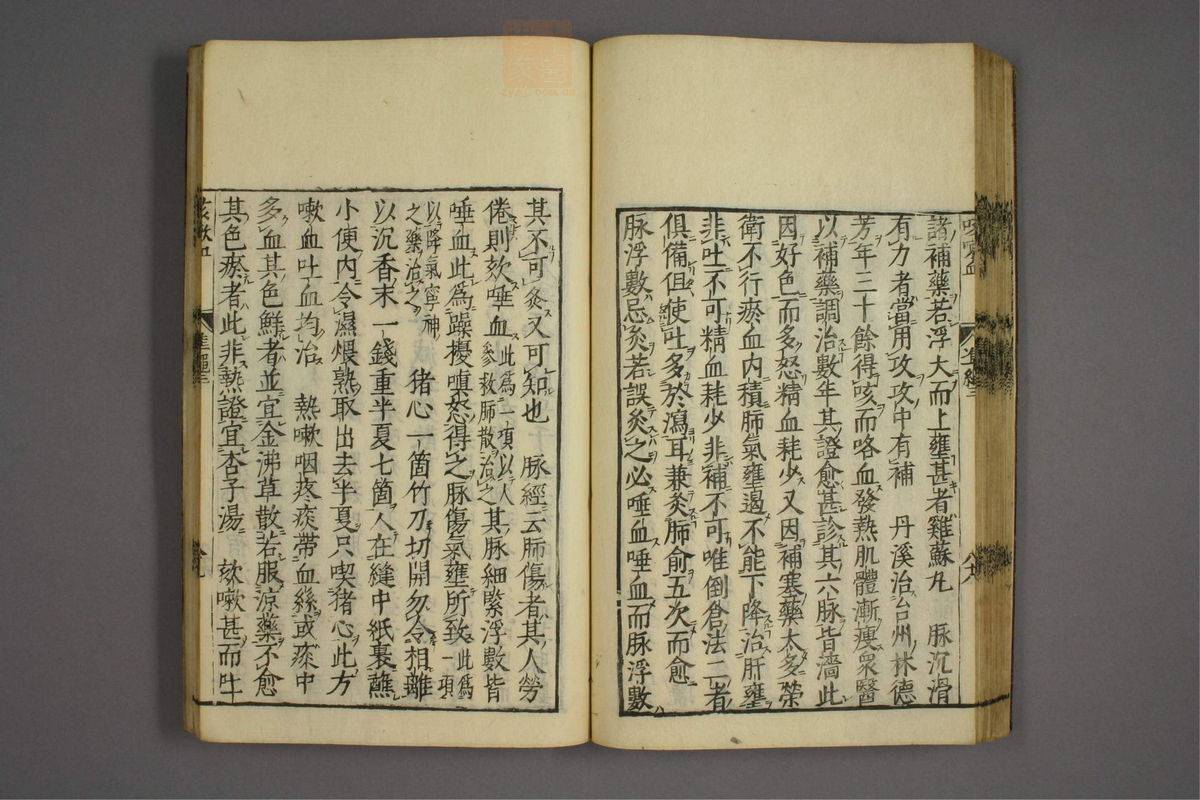 諸補藥若浮大而上壅甚者雞蘇丸　脉沉滑
有力者當用攻攻中有補　丹溪治台州林德
芳年三十餘得咳而咯血發熱肌體漸瘦衆醫
以補藥調治數年其證愈甚診其六脉皆濇此
因好色而多怒精血耗少又因補塞藥太多榮
衛不行瘀血内積肺氣壅遏不能下降治肝壅
非吐不可精血耗少非補不可唯倒倉法二者
俱備但使吐多於瀉耳兼灸肺俞五次而愈
脉浮數忌灸若誤灸之必唾血唾血而脉浮數
其不可灸又可知也　脉經云肺傷者其人勞
倦則欬唾血此爲一項以人參救肺散治之其脉細緊浮數皆
唾血此爲躁擾嗔怒得之脉傷氣壅所致此爲一項
以降氣寧神之藥治之　猪心一箇竹刀切開勿令相離
以沉香末一錢重半夏七箇入在縫中紙裹蘸
小便内令濕煨熟取出去半夏只喫猪心此方
嗽血吐血均治　熱嗽咽疼痰帶血絲或痰中
多血其色鮮者並宜金沸草散若服涼藥不愈
其色瘀者此非熱證宜杏子湯　欬嗽甚而吐
咳嗽血